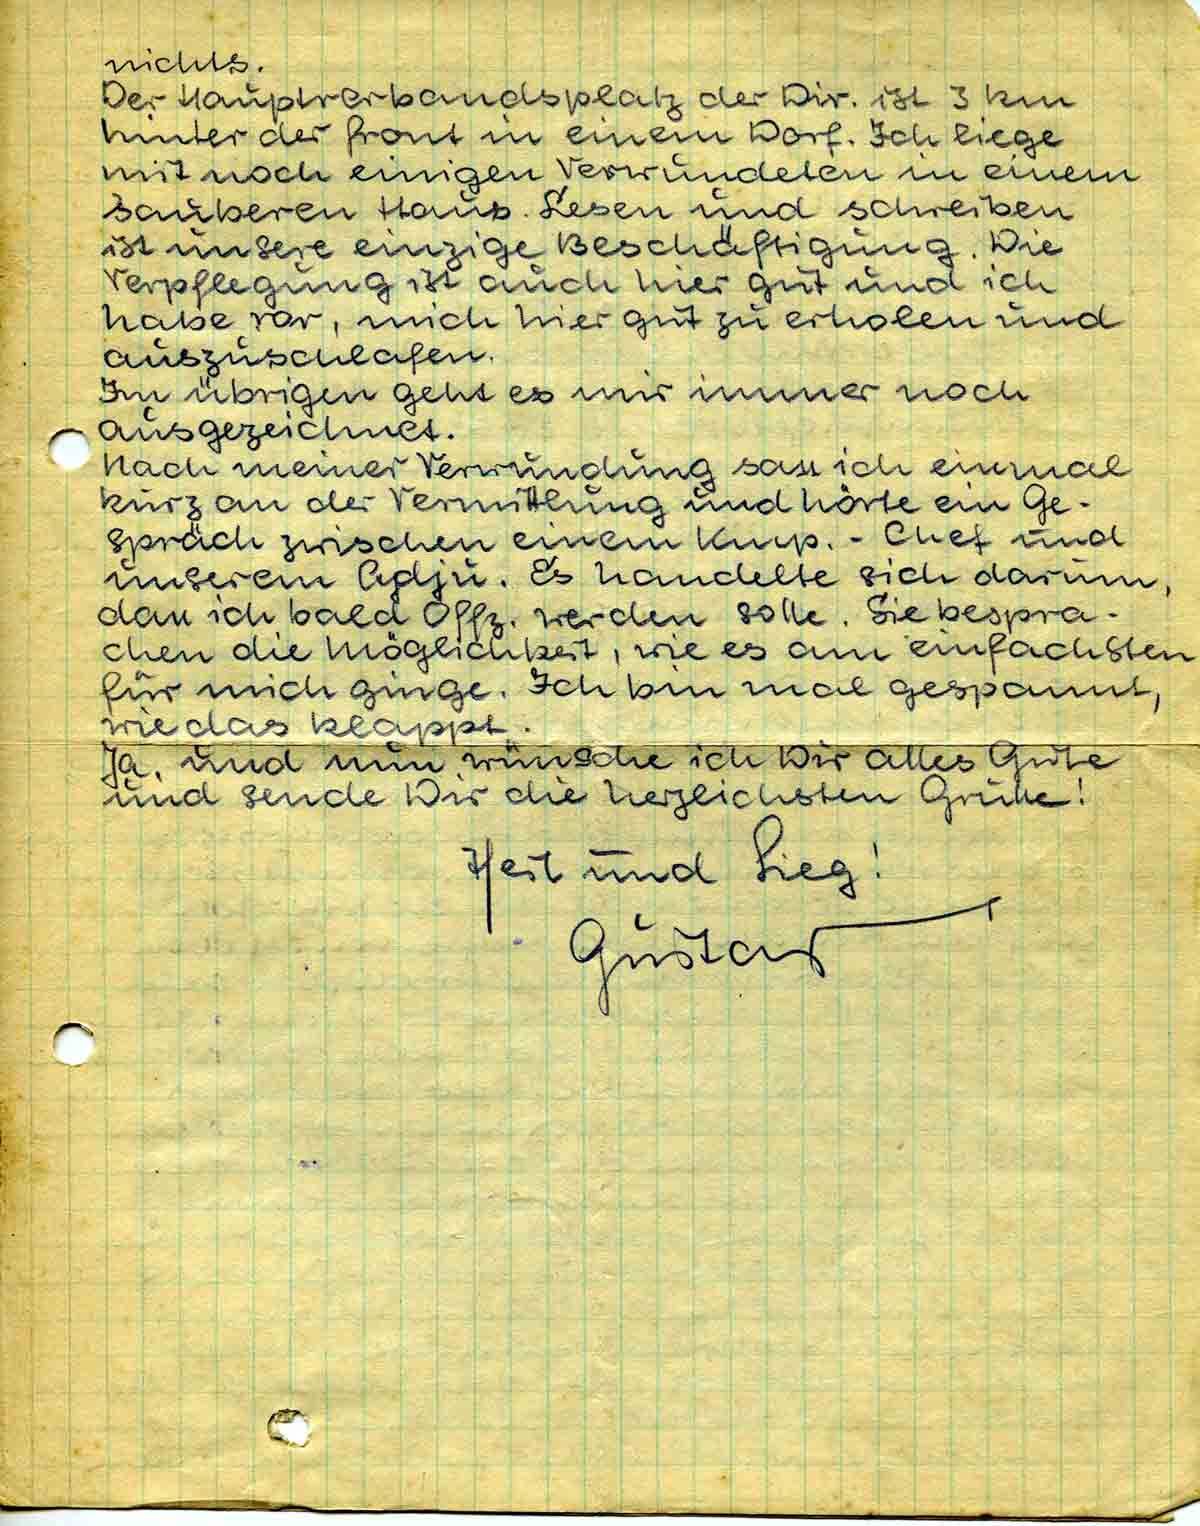 nichts.
Der Hauptverbandsplatz der Div. ist 3 km
hinter der Front in einem Dorf. Ich liege
mit noch einigen Verwundeten in einem
sauberen Haus. Lesen und schreiben
ist unsere einzige Beschäftigung. Die
Verpflegung ist auch hier gut und ich
habe vor, mich hier gut zu erholen und
auszuschlafen.
Im übrigen geht es mir immer noch
ausgezeichnet.
Nach meiner Verwundung sass ich einmal
kurz an der Vermittlung und hörte ein Ge-
spräch zwischen einem Kmp.-Chef und
unserem Adju. Es handelte sich darum,
dass ich bald Offz. werden solle. Sie bespra-
chen die Möglichkeit, wie es am einfachsten
für mich ginge. Ich bin mal gespannt,
wie das klappt.
Ja, und nun wünsche ich Dir alles Gute
und sende Dir die herzlichsten Grüße!
Heil und Sieg!
Gustav